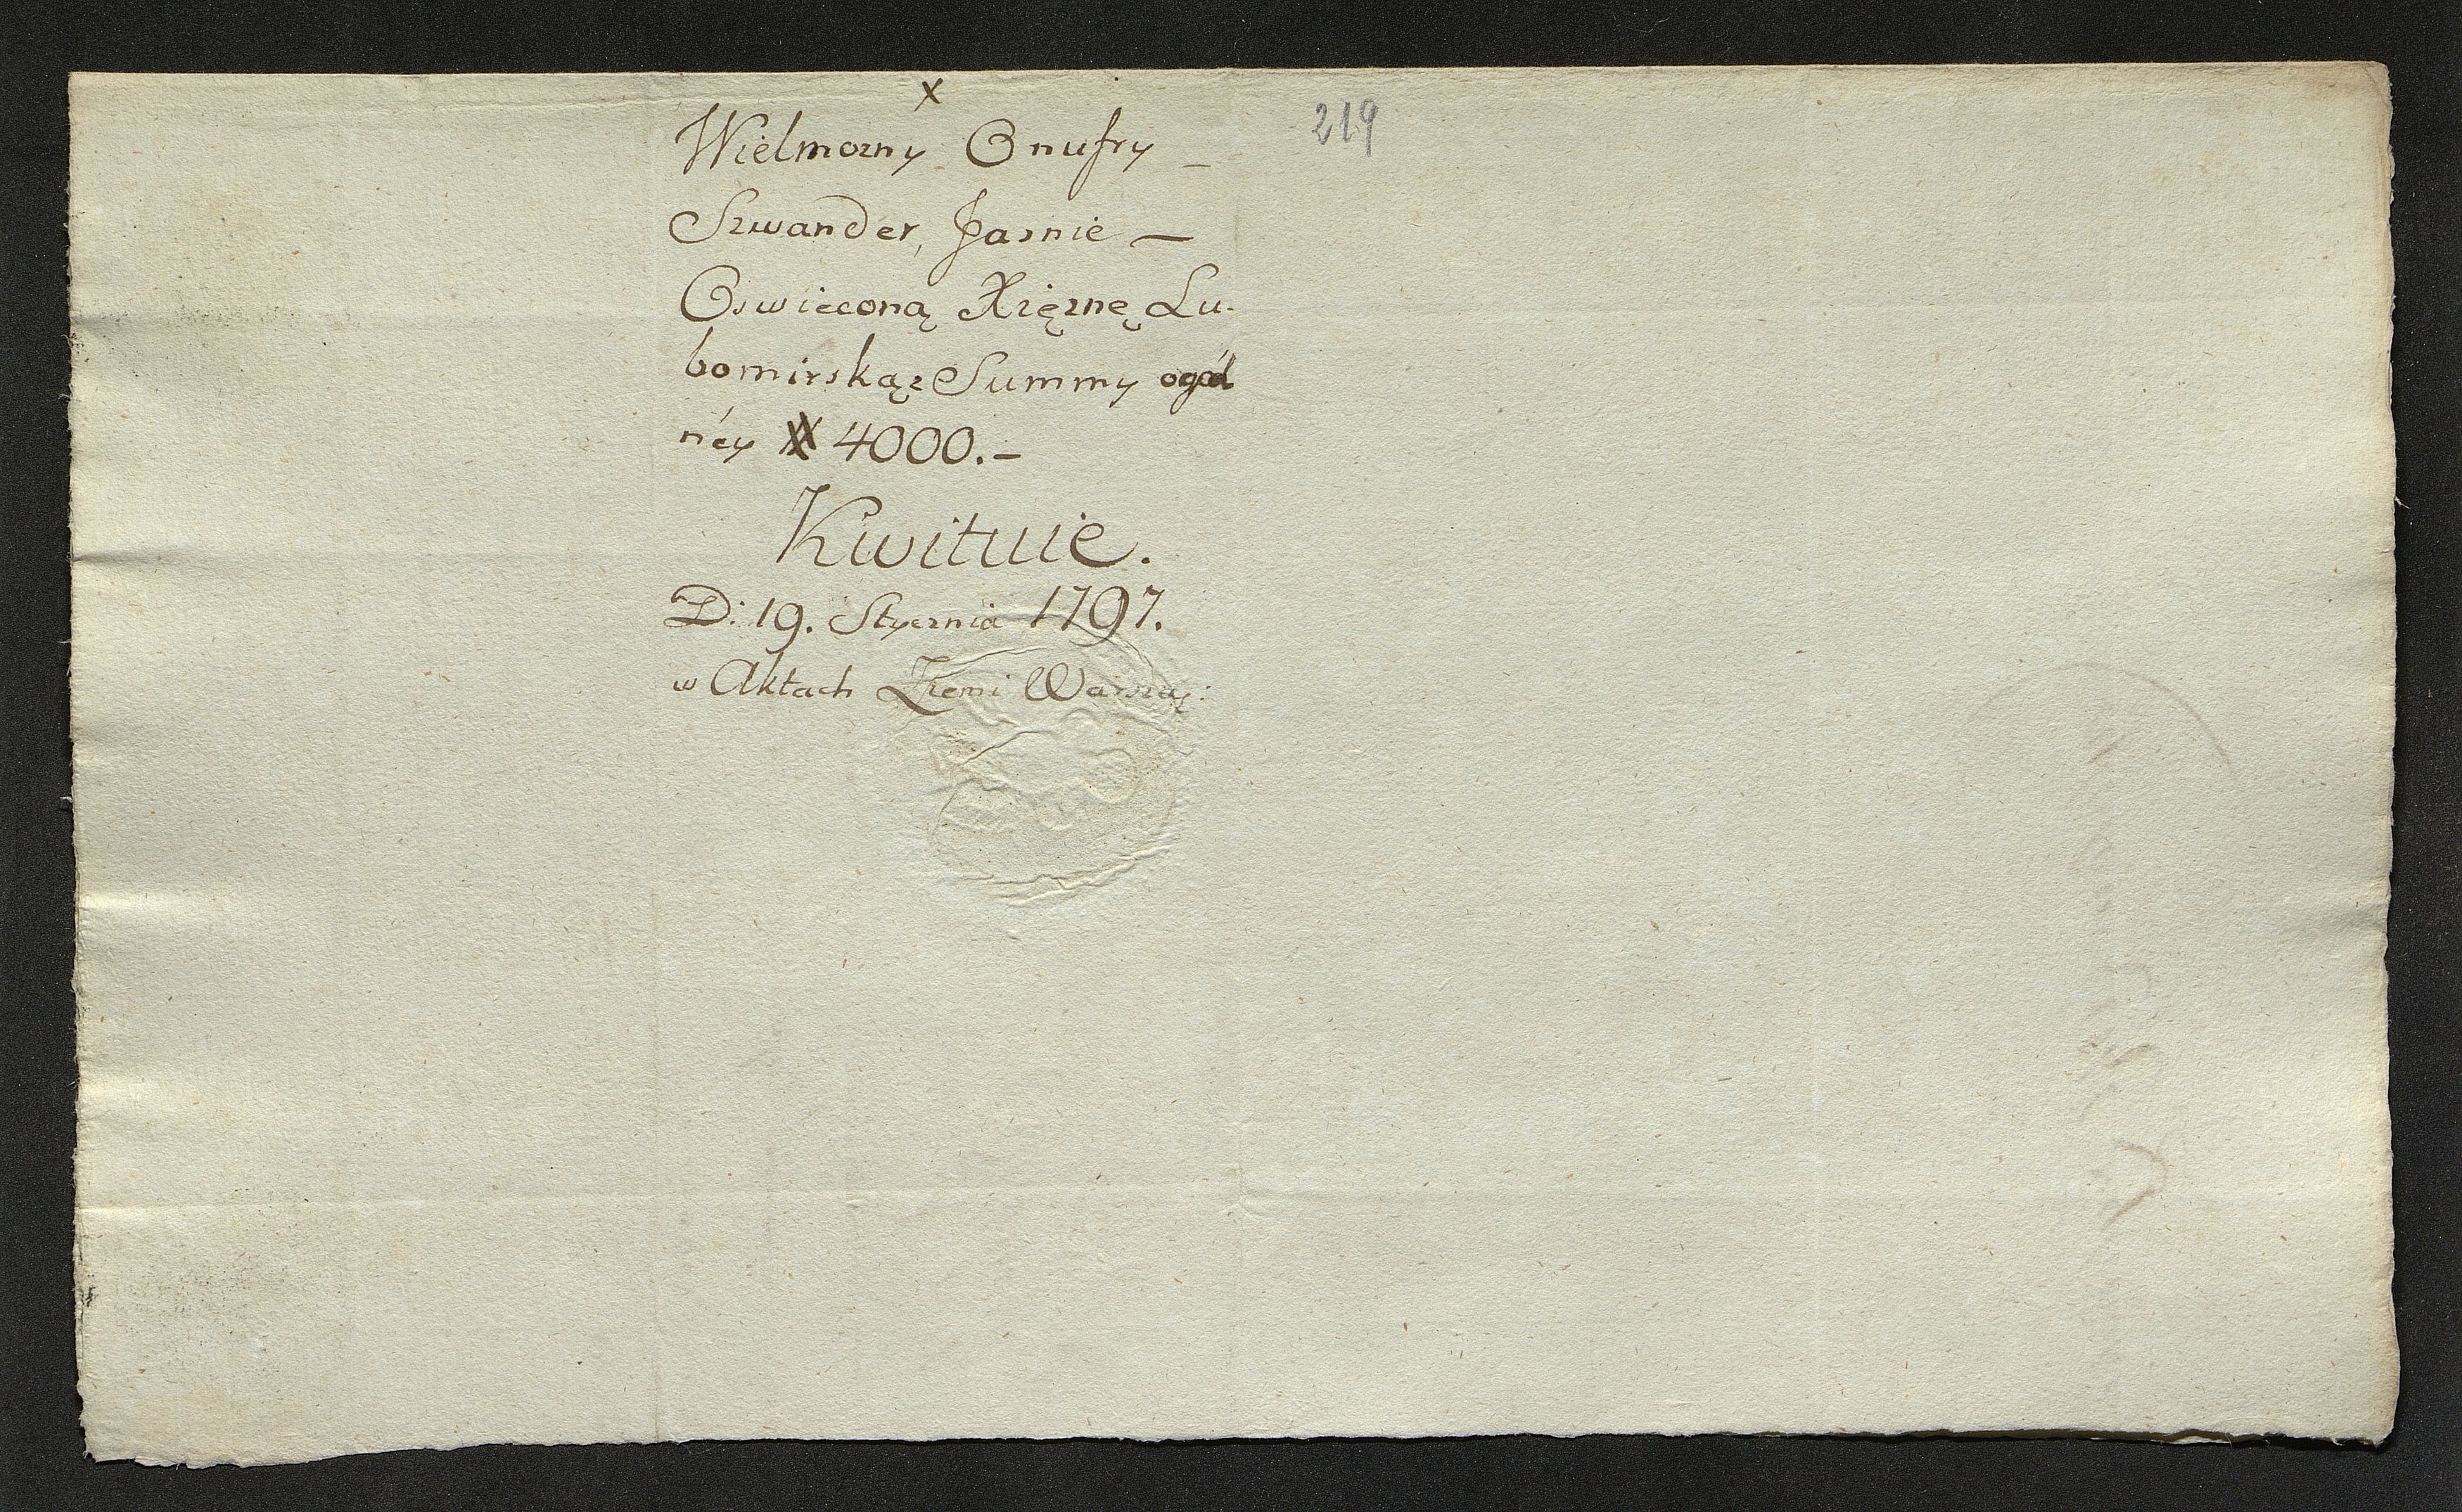 x
219
Wielmozny Onufry –
Szwander, Jasnie —
Oswieconą Xięznę Lu-
bomirską z Summy ogól
néy # 4000.–
Kwituie.
D: 19. Stycznia 1797.
w Aktach Ziemi Warszaẏ: